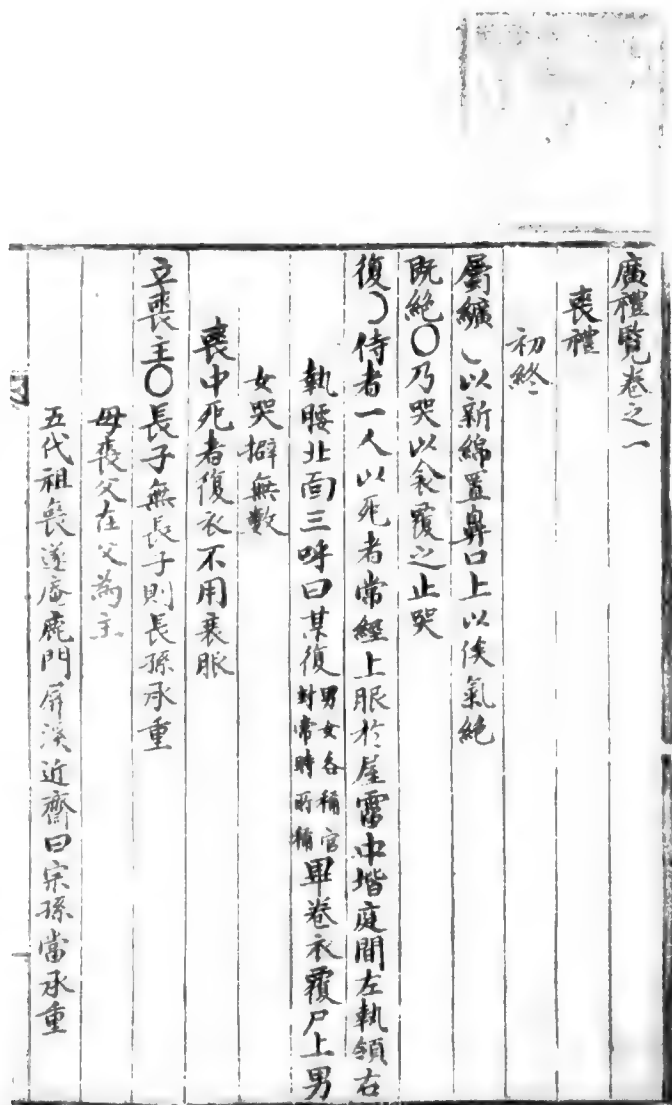 廣禮覽卷之一
喪禮
初終
屬纊 以新綿置鼻口上以俟氣絶
既絶〇乃哭以衾覆之止哭
復 侍者一人以死者常經上服於屋霤中堦庭間左執領右
執腰北面三呼曰某復男女各稱官封常時所稱畢卷衣覆尸上男
女哭擗無數
喪中死者復衣不用衰服
立喪主〇長子無長子則長孫承重
母喪父在父為主
五代祖喪遂庵鹿門屏溪近齋曰宗孫當承重